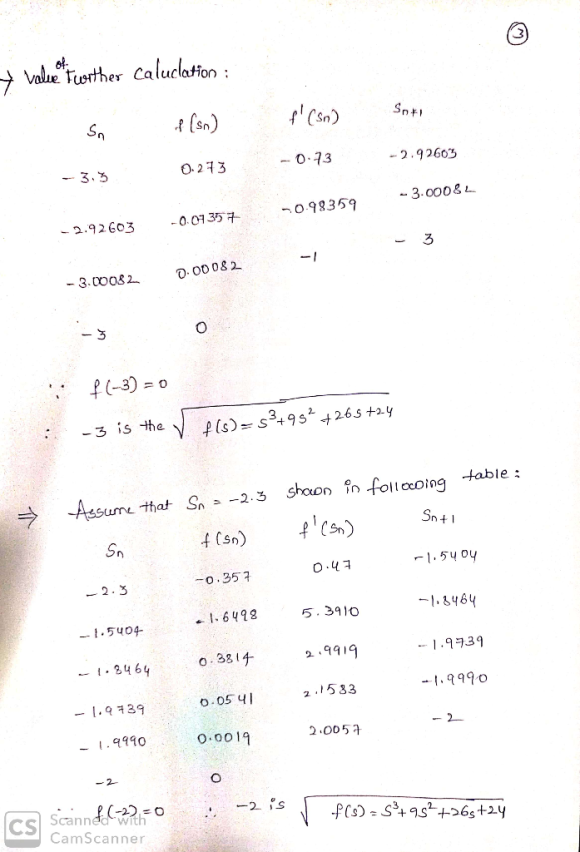 ③
→ Value of Further Caluclation :
Sn f(sn) f'(sn) Sn+1
- 3.3 0.273 - 0.73 - 2.92603
- 2.92603 - 0.07357 - 0.98359 - 3.00082
- 3.00082 0.00082 -1 - 3
- 3 0
∵ f(-3) = 0
∴ -3 is the √ f(s) = s³+9s²+26s+24
⇒ Assume that Sn = -2.3 shown in following table :
Sn f(sn) f'(sn) Sn+1
- 2.3 -0.357 0.47 -1.5404
- 1.5404 - 1.6498 5.3910 -1.8464
- 1.8464 0.3814 2.9919 - 1.9739
- 1.9739 0.0541 2.1583 -1.9990
- 1.9990 0.0019 2.0057 - 2
-2 0
∵ f(-2) = 0 ∴ -2 is √ f(s) = s³+9s²+26s+24
CS Scanned with
CamScanner